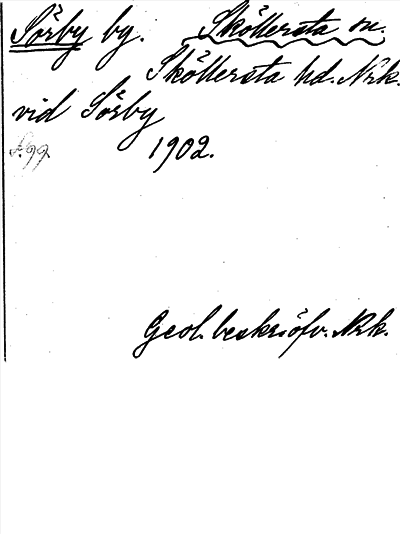 Sörby by. Sköllersta sn.
Sköllersta hd. Nrk.
vid Sörby
S. 99 1902.
Geol. beskrifv. Nrk.